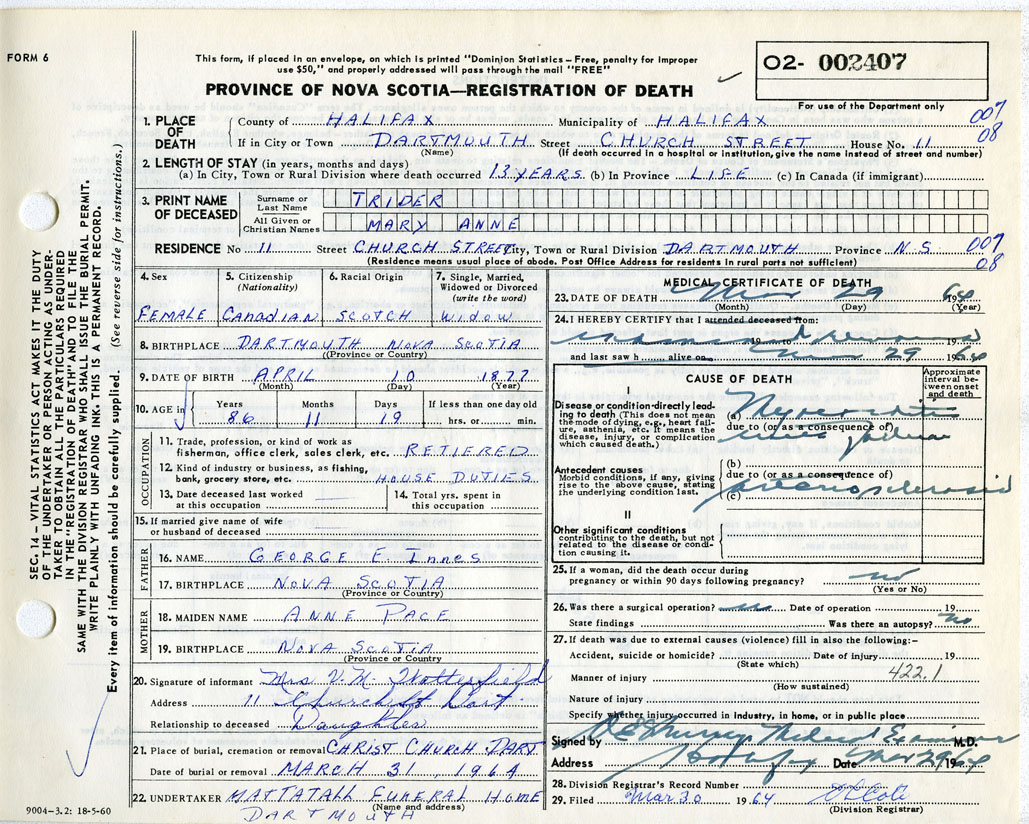 FORM 6
This form, if placed in an envelope, on which is printed "Dominion Statistics – Free, penalty for improper
use $50," and properly addressed will pass through the mail "FREE"
PROVINCE OF NOVA SCOTIA—REGISTRATION OF DEATH
02- 002407
For use of the Department only
007
08
1. PLACE OF DEATH
County of HALIFAX Municipality of HALIFAX
If in City or Town DARTMOUTH Street CHURCH STREET House No. 11
(Name) (If death occurred in a hospital or institution, give the name instead of street and number)
2. LENGTH OF STAY (in years, months and days)
(a) In City, Town or Rural Division where death occurred 13 YEARS (b) In Province LIFE (c) In Canada (if immigrant)
3. PRINT NAME OF DECEASED
Surname or Last Name TRIDER
All Given or Christian Names MARY ANNE
RESIDENCE No 11 Street CHURCH STREET City, Town or Rural Division DARTMOUTH Province N.S. 007
08
(Residence means usual place of abode. Post Office Address for residents in rural parts not sufficient)
4. Sex
FEMALE
5. Citizenship (Nationality)
Canadian
6. Racial Origin
SCOTCH
7. Single, Married, Widowed or Divorced (write the word)
Widow
8. BIRTHPLACE DARTMOUTH NOVA SCOTIA
(Province or Country)
9. DATE OF BIRTH APRIL 10 1877
(Month) (Day) (Year)
10. AGE in Years Months Days If less than one day old
86 11 19 hrs. or min.
OCCUPATION
11. Trade, profession, or kind of work as
fisherman, office clerk, sales clerk, etc. RETIERED
12. Kind of industry or business, as fishing,
bank, grocery store, etc. HOUSE DUTIES
13. Date deceased last worked
at this occupation
14. Total yrs. spent in
this occupation
15. If married give name of wife
or husband of deceased
FATHER
16. NAME GEORGE E. INNES
17. BIRTHPLACE NOVA SCOTIA
(Province or Country)
MOTHER
18. MAIDEN NAME ANNE PACE
19. BIRTHPLACE NOVA SCOTIA
(Province or Country)
20. Signature of informant Mrs V. M.
Address 11 Church St Dart.
Relationship to deceased Daughter
21. Place of burial, cremation or removal CHRIST CHURCH DART
Date of burial or removal MARCH 31, 1964
22. UNDERTAKER MATTATALL FUNERAL HOME
(Name and address)
DARTMOUTH
MEDICAL CERTIFICATE OF DEATH
23. DATE OF DEATH Mar 29 1964
(Month) (Day) (Year)
24. I HEREBY CERTIFY that I attended deceased from:
19 to 19
and last saw h alive on Mar 29 1964
CAUSE OF DEATH
Approximate interval between onset and death
I
Disease or condition directly lead-
ing to death (This does not mean
the mode of dying, e.g., heart fail-
ure, asthenia, etc. It means the
disease, injury, or complication
which caused death.)
(a)
due to (or as a consequence of)
Antecedent causes
Morbid conditions, if any, giving
rise to the above cause, stating
the underlying condition last.
(b)
due to (or as a consequence of)
(c)
II
Other significant conditions
contributing to the death, but not
related to the disease or condi-
tion causing it.
25. If a woman, did the death occur during
pregnancy or within 90 days following pregnancy? no
(Yes or No)
26. Was there a surgical operation? no Date of operation 19
State findings Was there an autopsy? no
27. If death was due to external causes (violence) fill in also the following:–
Accident, suicide or homicide? Date of injury 19
(State which)
Manner of injury 422.1
(How sustained)
Nature of injury
Specify whether injury occurred in Industry, in home, or in public place
Signed by Murray Medical Examiner M.D.
Address Halifax Date Mar 29 1964
28. Division Registrar's Record Number
29. Filed Mar 30 1964
(Division Registrar)
SEC. 14 – VITAL STATISTICS ACT MAKES IT THE DUTY
OF THE UNDERTAKER OR PERSON ACTING AS UNDER-
TAKER TO OBTAIN ALL THE PARTICULARS REQUIRED
IN THE "REGISTRATION OF DEATH" AND TO FILE THE
SAME WITH THE DIVISION REGISTRAR WHO SHALL ISSUE THE BURIAL PERMIT.
WRITE PLAINLY WITH UNFADING INK. THIS IS A PERMANENT RECORD.
Every item of information should be carefully supplied. (See reverse side for instructions.)
9004–3.2: 18-5-60